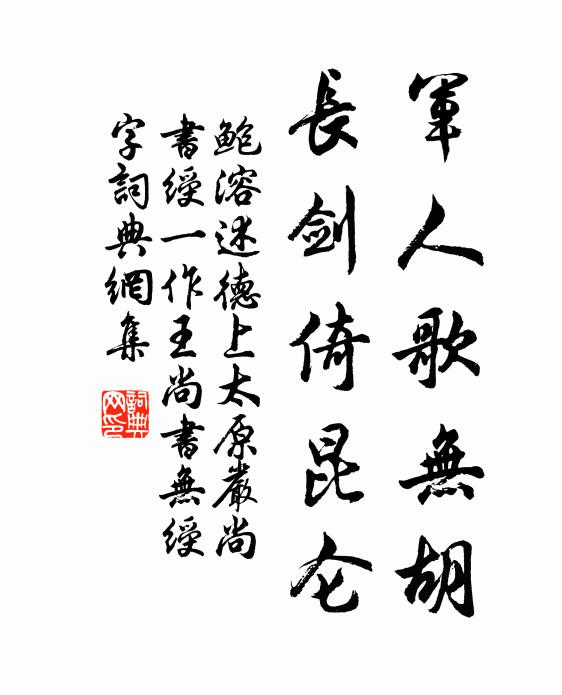 軍人歌無胡
長剑倚昆仑
鲍溶述德上太原嚴尚
書綬一作王尚書無綬
字詞典網集
詞典网印